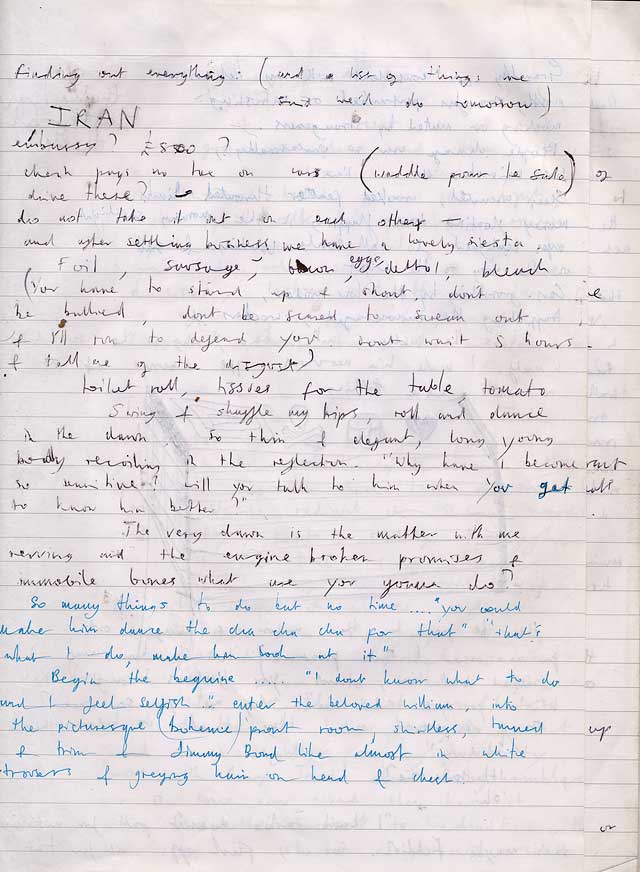 finding out everything. (and a list of things we
said we'd do tomorrow)
IRAN
embassy? £5500 ?
check pays no tax on cars (waddle poser le sale) of
drive there?
do not take it out on each other –
and after settling business we have a lovely siesta.
Foil, sausage, brown eggs, dettol bleach
(You have to stand up & shout, dont
be bullied, dont be scared to scream out,
& I'll run to defend you. Dont wait 5 hours.
& tell me of the disgust)
toilet roll, tissues for the table, tomato
Swing & shuffle my hips, roll and dance
in the dawn, so thin & elegant, long young
body recoiling in the reflection. "Why have I become
so sensitive? Will you talk to him when you get
to know him better?"
The very dawn is the matter with me
revving and the engine broken promises &
immobile bones what are you gonna do?
So many things to do but no time .... "you could
make him dance the cha cha cha for that" "that's
what I do, make him look at it"
Begin the beguine ..... "I dont know what to do
and I feel selfish." enter the beloved william, into
the picturesque (boheme) front room, shirtless, tanned up
& trim & Jimmy Bond like almost in white
trousers & greying hair on head & chest.
or